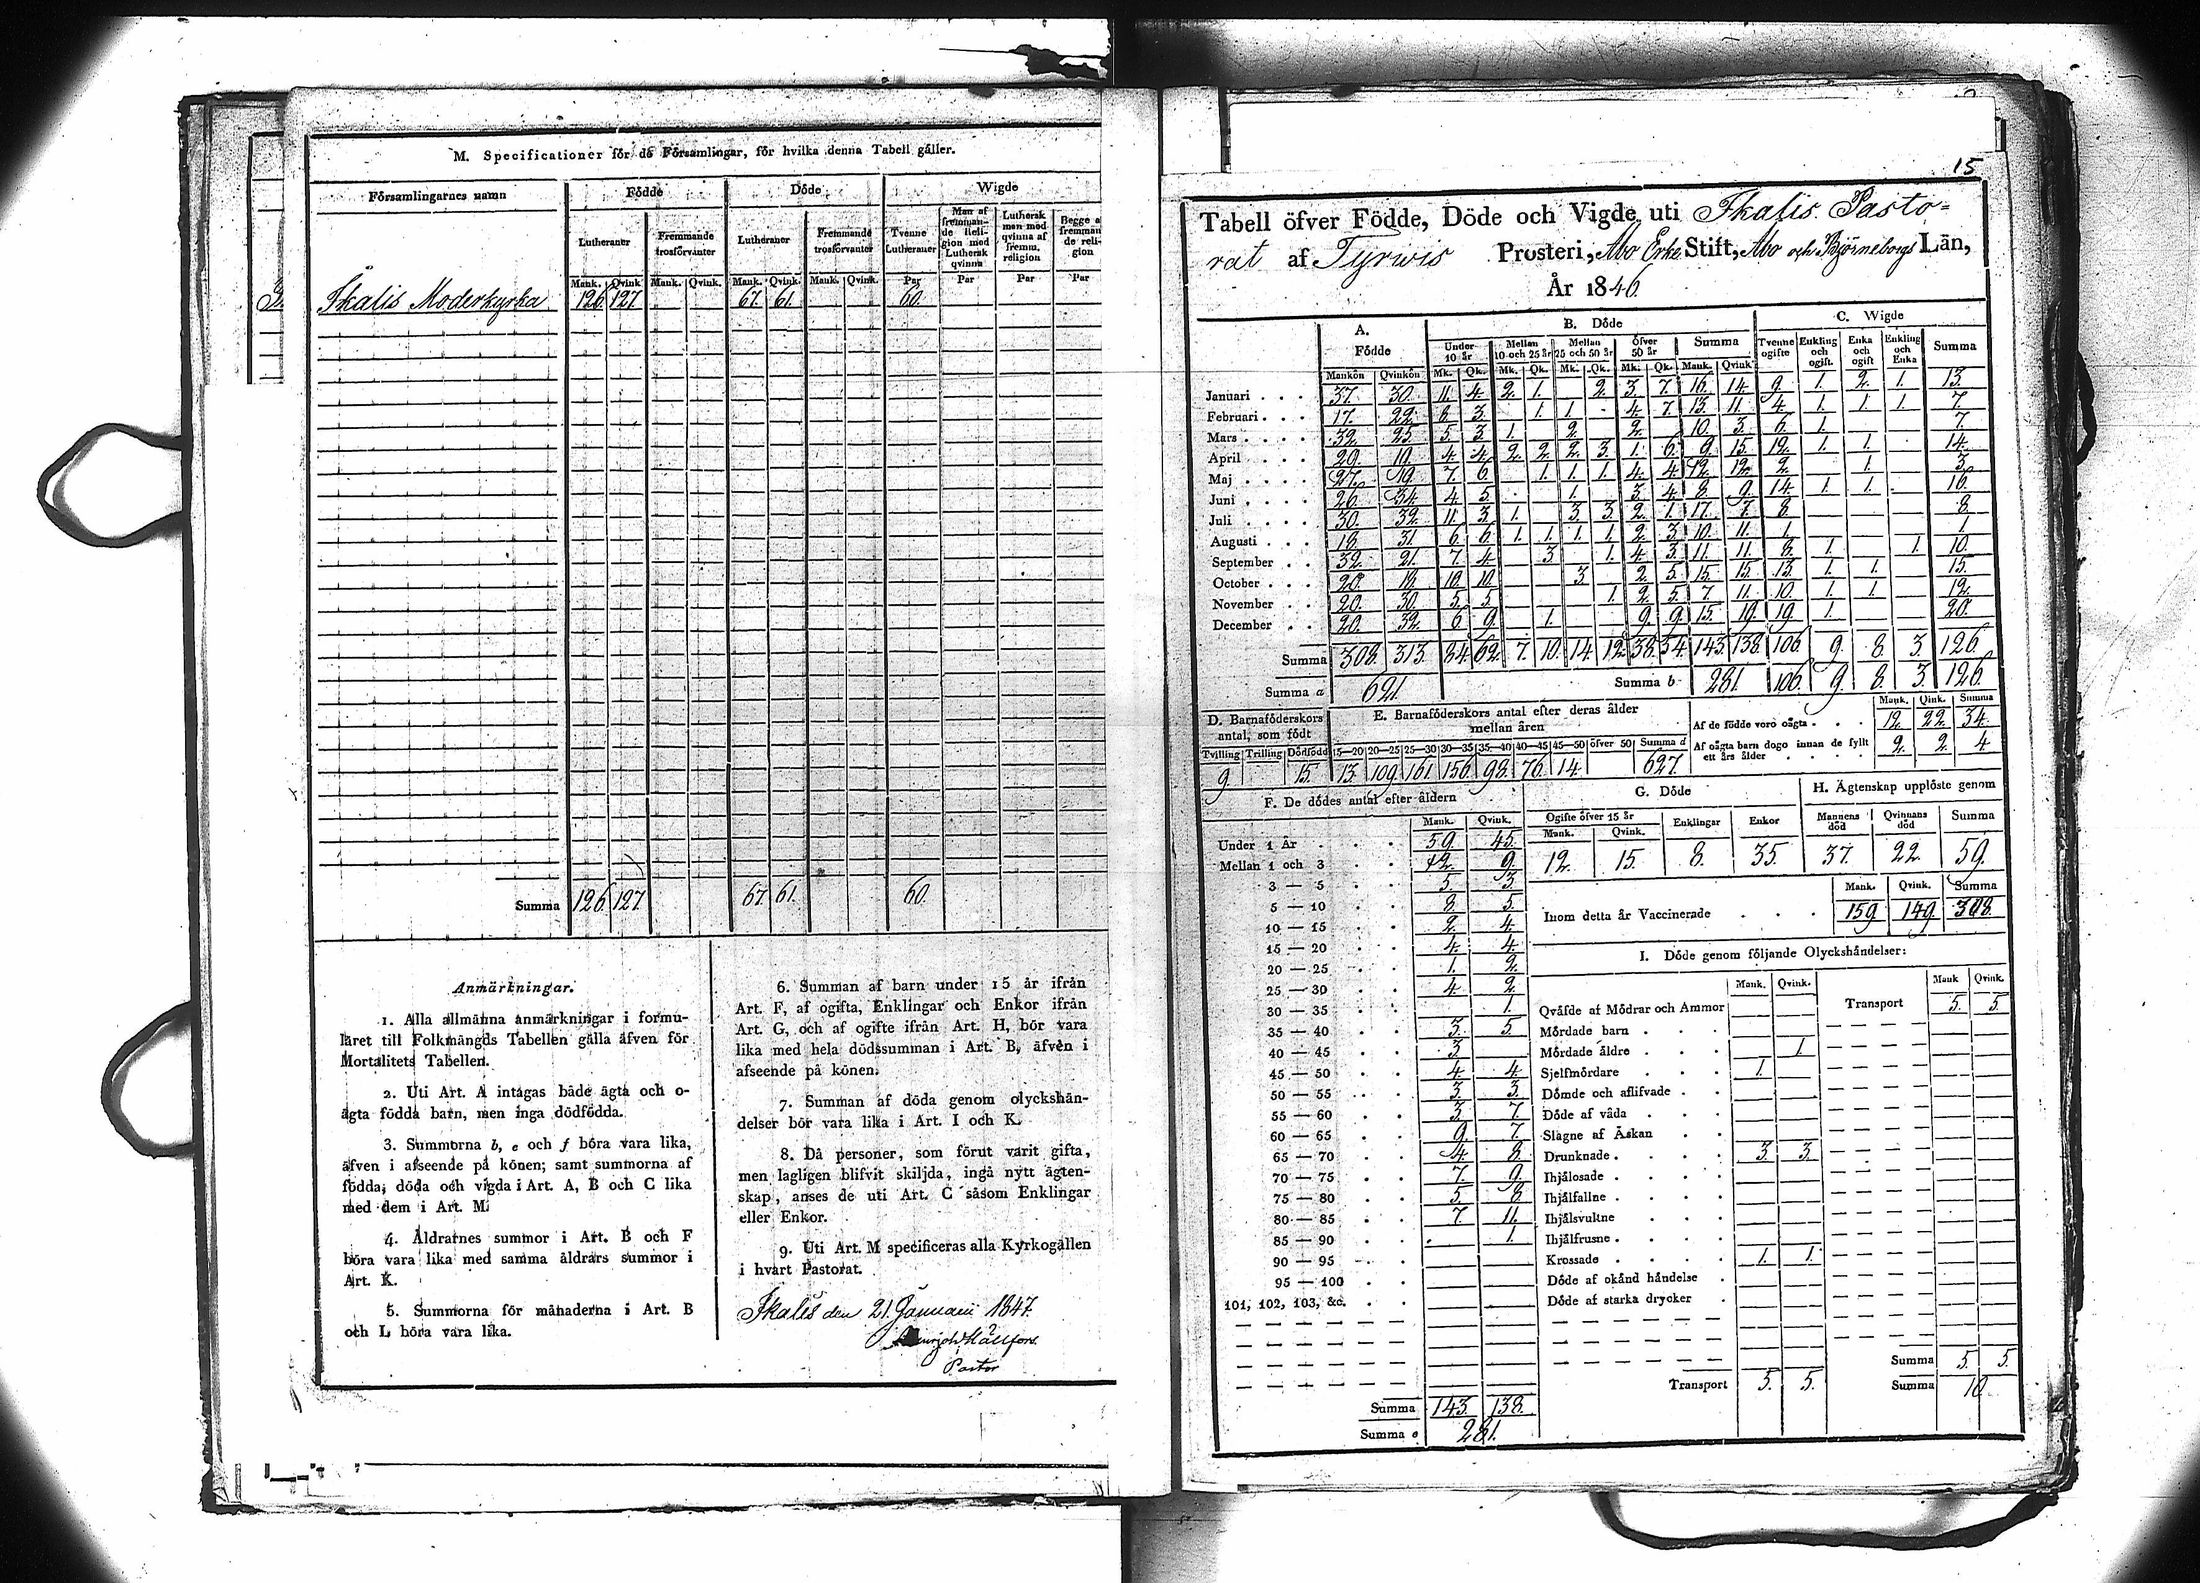 M. Specificationer för de Församlingar, för hvilka denna Tabell gäller.
Församlingarnes namn Födde Döde Wigde
Lutheraner Fremmande trosförvanter Lutheraner Fremmande trosförvanter Tvenne Lutheraner Man af fremmande Religion med Luthersk qvinna Luthersk man med qvinna af fremm. religion Begge a fremman de religion
Mank. Qvink Mank. Qvink. Mank. Qvink. Mank. Qvink. Par Par Par Par
Ikalis Moderkyrka 126. 127. 67. 61. 60.
Summa 126. 127 67. 61. 60.
Anmärkningar.
1. Alla allmänna anmärkningar i formu-
läret till Folkmängds Tabellen gälla äfven för
Mortalitets Tabellen.
2. Uti Art. A intagas både ägta och o-
ägta födda barn, men inga dödfödda.
3. Summorna b, e och f böra vara lika,
äfven i afseende på könen; samt summorna af
födda, döda och vigda i Art. A, B och C lika
med dem i Art. M.
4. Åldrarnes summor i Art. B och F
böra vara lika med samma åldrars summor i
Art. K.
5. Summorna för månaderna i Art. B
och L böra vara lika.
6. Summan af barn under 15 år ifrån
Art. F, af ogifta, Enklingar och Enkor ifrån
Art. G, och af ogifte ifrån Art. H, bör vara
lika med hela dödssumman i Art. B, äfven i
afseende på könen.
7. Summan af döda genom olyckshän-
delser bör vara lika i Art. I och K.
8. Då personer, som förut varit gifta,
men lagligen blifvit skiljda, ingå nytt ägten-
skap, anses de uti Art. C såsom Enklingar
eller Enkor.
9. Uti Art. M specificeras alla Kyrkogällen
i hvart Pastorat.
Ikalis den 21 Januari 1847.
Pastor
15
Tabell öfver Födde, Döde och Vigde, uti Ikalis Pasto-
rat af Tyrwis Prosteri, Åbo Erke Stift, Åbo och Björneborgs Län,
År 1846.
A. Födde B. Döde C. Wigde
Under 10 år Mellan 10 och 25 år Mellan 25 och 50 år Öfver 50 år Summa Tvenne ogifte Enkling och ogift. Enka och ogift Enkling och Enka Summa
Mankön Qvinkön Mk. Qk. Mk. Qk. Mk. Qk. Mk. Qk. Mank. Qvink
Januari 37. 30. 11. 4. 2. 1. 2. 3. 7. 16. 14. 9. 1. 2. 1. 13.
Februari 17. 22. 8. 3. 1. 1. 4. 7. 13. 11. 4. 1. 1. 1. 7.
Mars 32. 25. 5. 3. 1. 2. 2. 10. 3. 6. 1. 7.
April 29. 19. 4. 4. 2. 2. 2. 3. 1. 6. 9. 15. 12. 1. 1. 14.
Maj 27. 19. 7. 6. 1. 1. 1. 4. 4. 12. 12. 2. 1. 3.
Juni 26. 34. 4. 5. 1. 3. 4. 8. 9. 14. 1. 1. 16.
Juli 30. 32. 11. 3. 1. 3. 3. 2. 1. 17. 7. 8. 8.
Augusti 18. 31. 6. 6. 1. 1. 1. 1. 2. 3. 10. 11. 1. 1
September 32. 21. 7. 4. 3. 1. 4. 3. 11. 11. 8. 1. 1. 10.
October 20. 18. 10. 10. 3 2. 5. 15. 15. 13. 1. 1. 15.
November 20. 30. 5. 5. 1. 2. 5. 7. 11. 10. 1. 1. 12.
December 20. 32. 6. 9. 1. 9. 9. 15. 19. 19. 1. 20.
Summa 308. 313. 84. 62. 7. 10. 14. 12. 38. 54. 143. 138. 106 9. 8. 3. 126.
Summa a 621. Summa b 281. 106. 9. 8. 3. 126.
D. Barnaföderskors antal, som födt E. Barnaföderskors antal efter deras ålder mellan åren Mank. Qink. Summa
Af de födde voro oägta 12. 22. 34.
Af oägta barn dogo innan de fyllt ett års ålder 2. 2. 4
Tvilling Trilling Dödfödd 15—20 20—25 25—30 30—35 35—40 40—45 45—50 öfver 50 Summa d
9. 15. 13. 109. 161. 156. 98. 76. 14. 627.
F. De dödes antal efter åldern
Mank. Qvink.
Under 1 År 59. 45.
Mellan 1 och 3 12. 9.
3 — 5 5. 3.
5 — 10 8. 5.
10 — 15 2. 4.
15 — 20 4. 4.
20 — 25 1. 2.
25 — 30 4. 2.
30 — 35 1.
35 — 40 3. 5
40 — 45 3
45 — 50 4. 4.
50 — 55 3. 3.
55 — 60 3. 7.
60 — 65 9. 7.
65 — 70 4. 8.
70 — 75 7. 9.
75 — 80 5. 8.
80 — 85 7. 11.
85 — 90 1.
90 — 95
95 — 100
101, 102, 103, &c.
Summa 143. 138.
Summa e 281.
G. Döde H. Ägtenskap upplöste genom
Ogifte öfver 15 år Enklingar Enkor Mannens död Qvinnans död Summa
Mank. Qvink.
12. 15. 8. 35. 37. 22. 59.
Mank. Qvink. Summa
Inom detta år Vaccinerade 159. 149. 308.
I. Döde genom följande Olyckshändelser:
Mank. Qvink. Mank Qvink.
Qväfde af Mödrar och Ammor Transport 5. 5.
Mördade barn
Mördade äldre 1
Sjelfmördare 1.
Dömde och aflifvade
Döde af våda
Slagne af Åskan
Drunknade 3. 3.
Ihjälosade
Ihjälfallne
Ihjälsvultne
Ihjälfrusne
Krossade 1. 1.
Döde af okänd händelse
Döde af starka drycker
Summa 5. 5.
Transport 5. 5. Summa 10